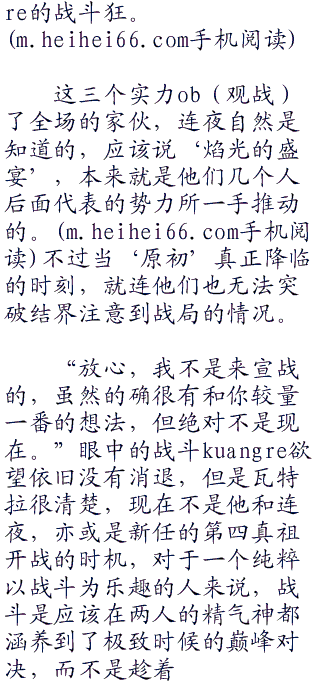 re的战斗狂。
(m.heihei66.com手机阅读)
这三个实力ob（观战）
了全场的家伙，连夜自然是
知道的，应该说‘焰光的盛
宴’，本来就是他们几个人
后面代表的势力所一手推动
的。(m.heihei66.com手机阅
读)不过当‘原初’真正降临
的时刻，就连他们也无法突
破结界注意到战局的情况。
“放心，我不是来宣战
的，虽然的确很有和你较量
一番的想法，但绝对不是现
在。”眼中的战斗kuangre欲
望依旧没有消退，但是瓦特
拉很清楚，现在不是他和连
夜，亦或是新任的第四真祖
开战的时机，对于一个纯粹
以战斗为乐趣的人来说，战
斗是应该在两人的精气神都
涵养到了极致时候的巅峰对
决，而不是趁着